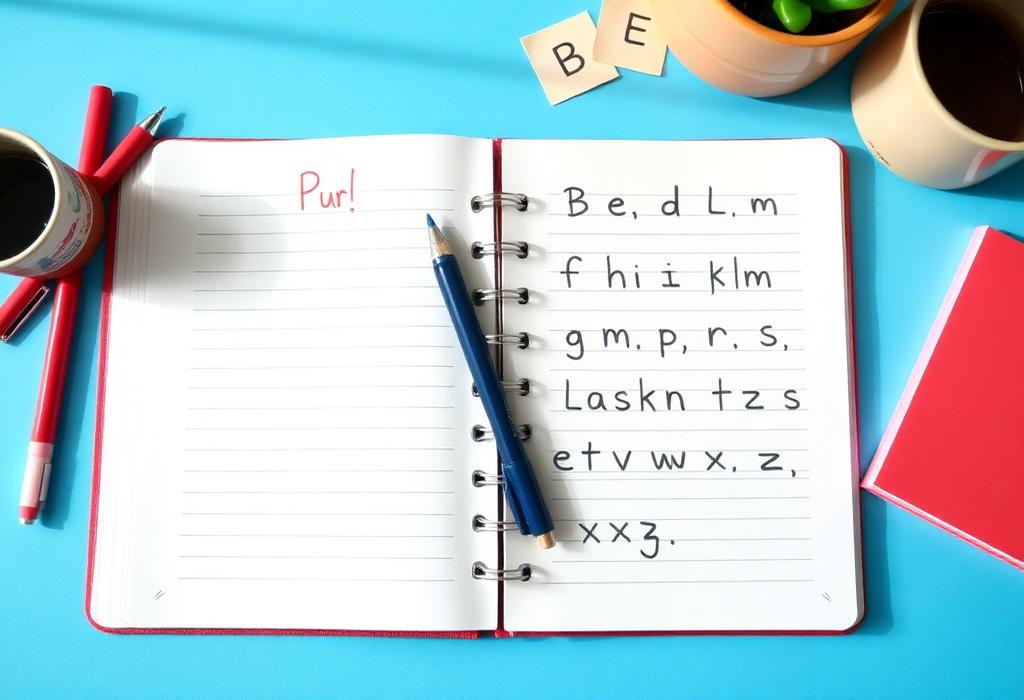 B
E
Pur!
B e, d L. m
f h i i k l m
g m. p, r. s,
Laskn t z s
e t v w x. z,
x x ʒ.